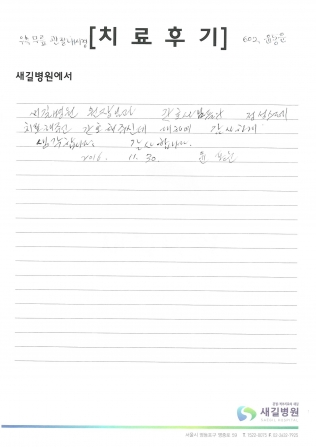 우측무릎 관절내시경 [치 료 후 기] 602.
새길병원에서
새길병원 원장님과 간호사님들이 정성스레
치료해주고 간호해주신데 대하여 감사하게
생각합니다. 감사합니다.
2016. 11. 30 윤
새길병원
SAEGIL HOSPITAL